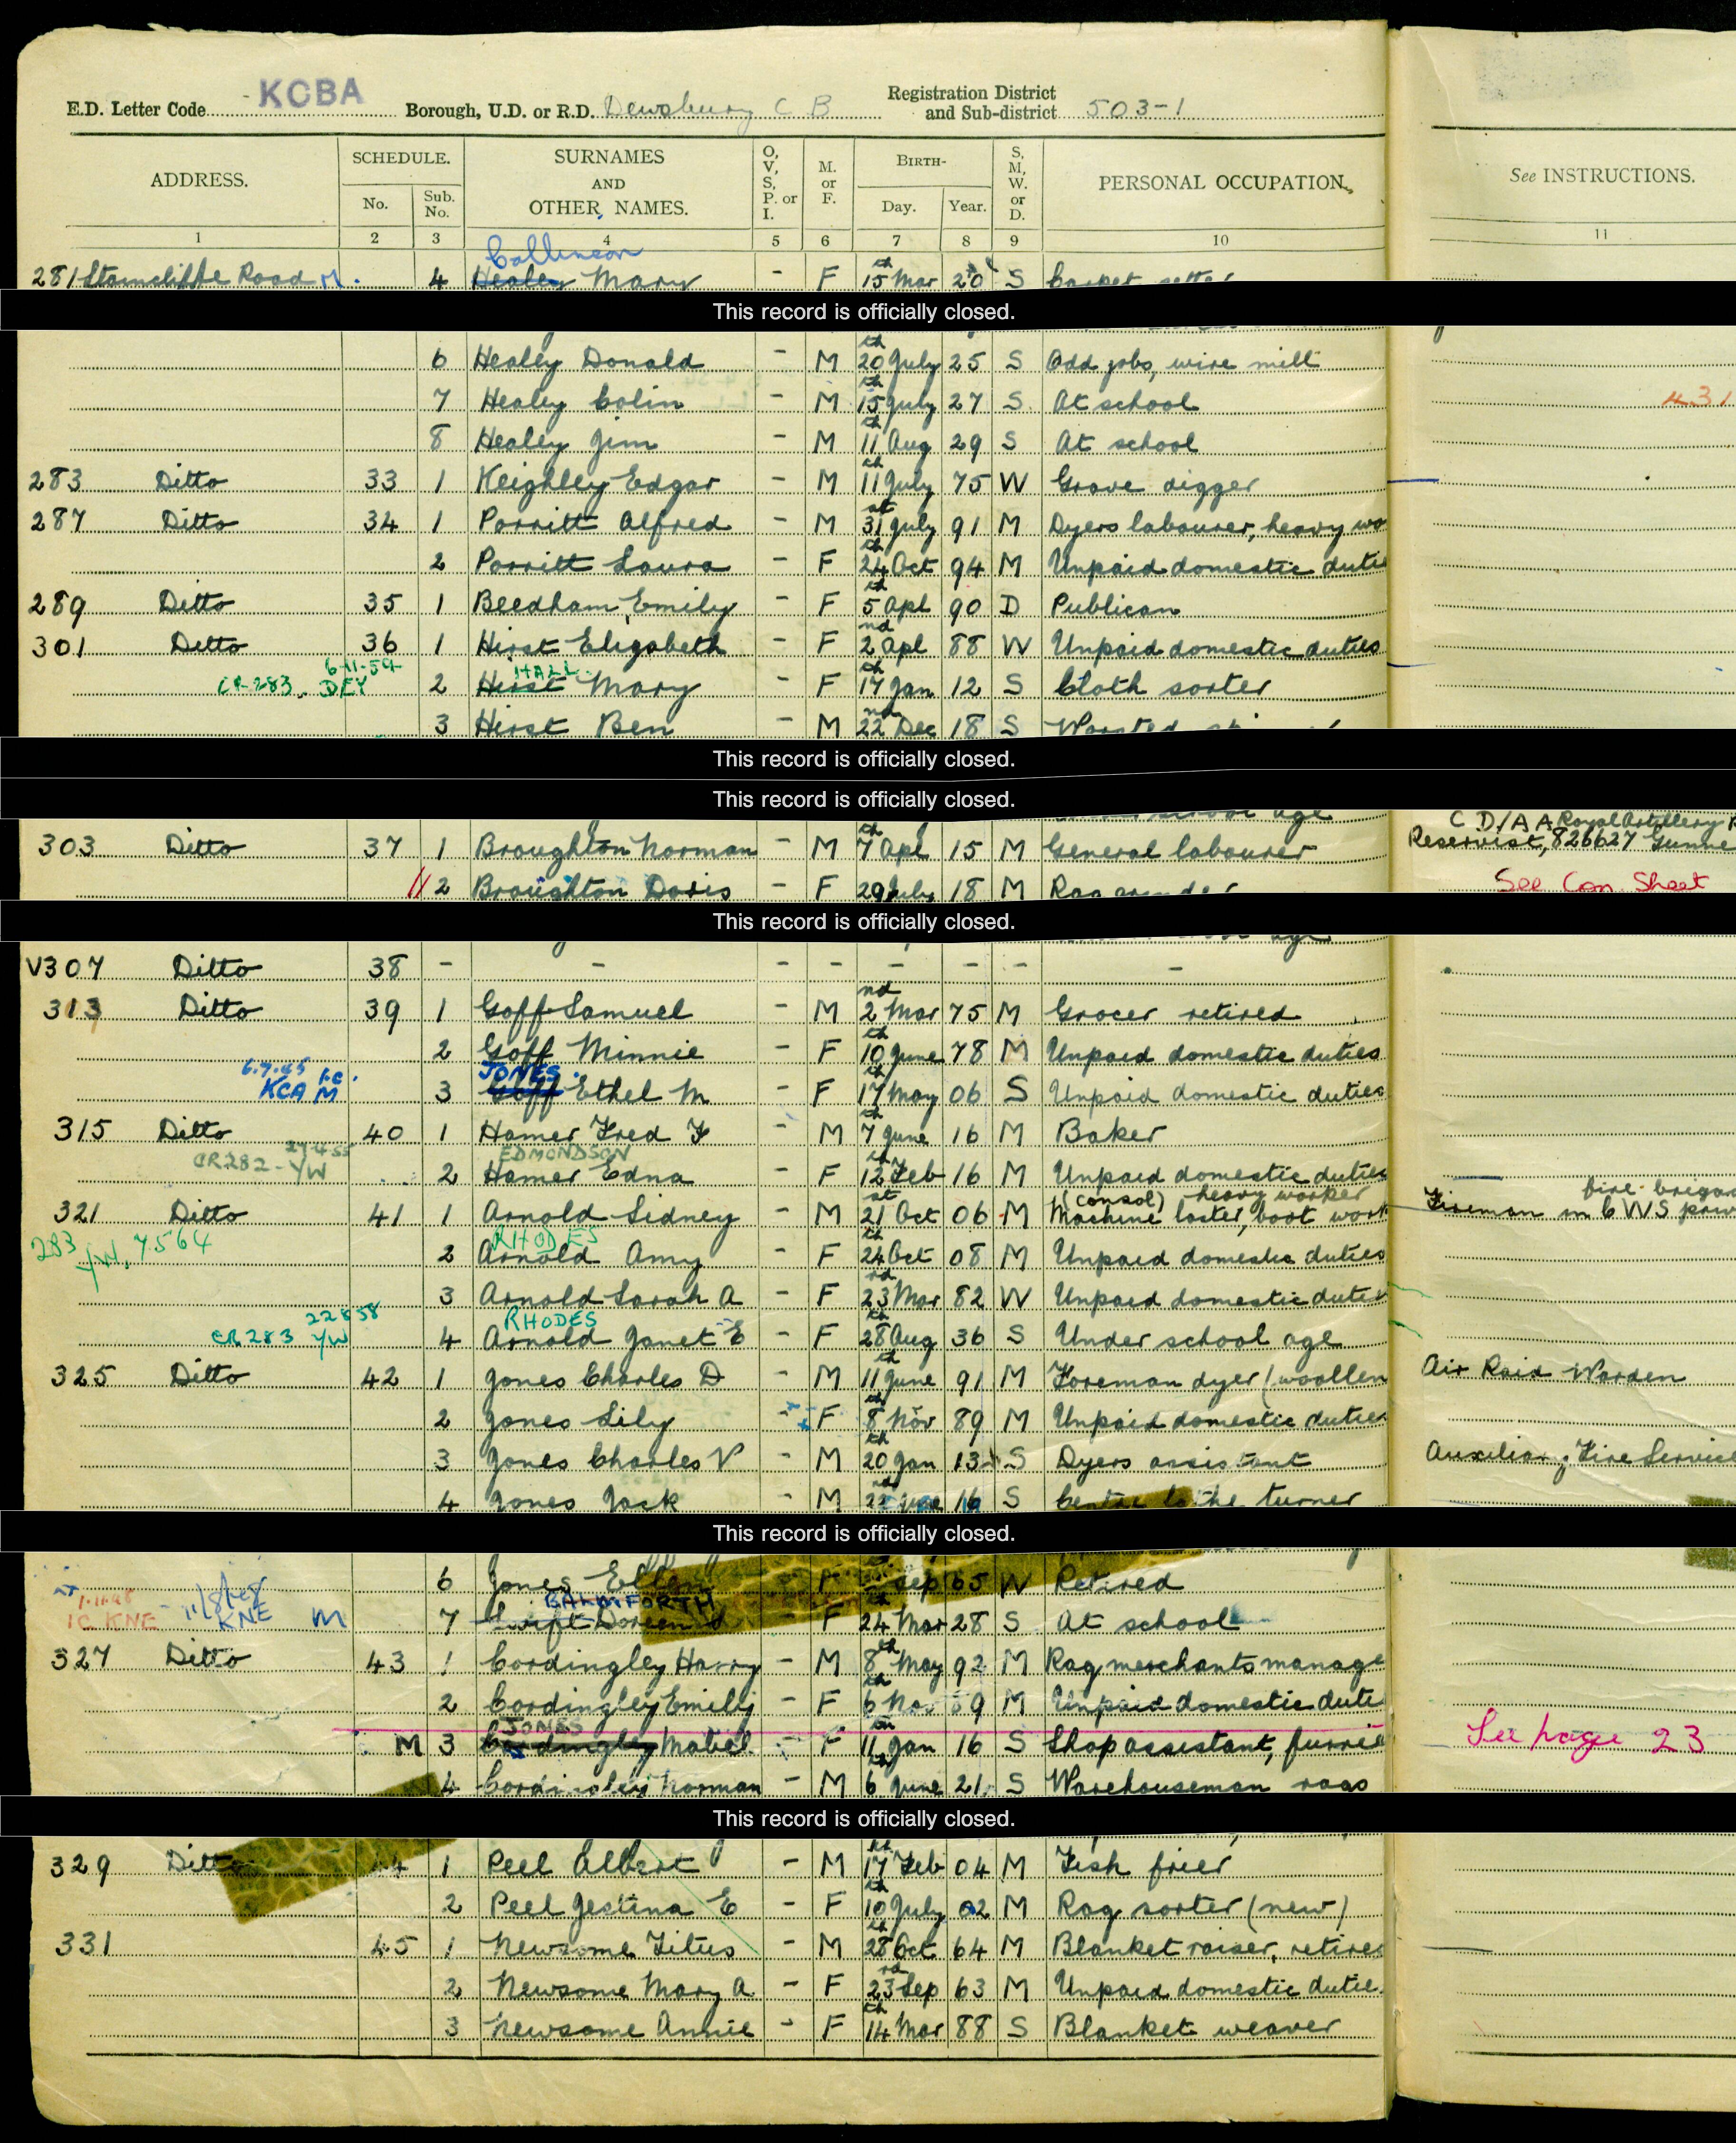 E.D. Letter Code KCBA Borough, U.D. or R.D. Dewsbury C B Registration District and Sub-district 503-1
ADDRESS. SCHEDULE. No. Sub. No. SURNAMES AND OTHER NAMES. O, V, S, P. or I. M. or F. BIRTH- Day. Year. S, M, W. or D. PERSONAL OCCUPATION. See INSTRUCTIONS.
1 2 3 4 5 6 7 8 9 10 11
Collinson
281 Staincliffe Road M. 4 Healey Mary - F 15th Mar 20 S Carpet setter
This record is officially closed.
6 Healey Donald - M 20th July 25 S Odd jobs, wire mill
7 Healey Colin - M 15th July 27 S At school 431
8 Healey Jim - M 11th Aug 29 S At school
283 Ditto 33 1 Keighley Edgar - M 11th July 75 W Grave digger
287 Ditto 34 1 Porritt Alfred - M 31st July 91 M Dyers labourer, heavy wo
2 Porritt Laura - F 24th Oct 94 M Unpaid domestic dutie
289 Ditto 35 1 Beedham Emily - F 5th Apl 90 D Publican
301 Ditto 36 1 Hirst Elizabeth - F 2nd Apl 88 W Unpaid domestic duties
6-11-59 HALL
CR-283. DEY 2 Hirst Mary - F 17th Jan 12 S Cloth sorter
3 Hirst Ben - M 22nd Dec 18 S Worsted
This record is officially closed.
This record is officially closed.
school age C D/A A Royal Artillery
303 Ditto 37 1 Broughton Norman - M 7th Apl 15 M General labourer Reservist, 826627 Gunne
2 Broughton Doris - F 29 July 18 M Rag grinder See Con. Sheet
This record is officially closed.
V307 Ditto 38 - - - - - - - -
313 Ditto 39 1 Goff Samuel - M 2nd Mar 75 M Grocer retired
2 Goff Minnie - F 10th June 78 M Unpaid domestic duties
6.9.45 I.C. JONES.
KCA M 3 Goff Ethel M - F 17th May 06 S Unpaid domestic duties
315 Ditto 40 1 Hamer Fred F - M 7th June 16 M Baker
27-4-55 EDMONDSON
CR282-YW 2 Hamer Edna - F 12th Feb 16 M Unpaid domestic duties
(consol) heavy worker fire brigad
321 Ditto 41 1 Arnold Sidney - M 21st Oct 06 M Machine laster, boot work Fireman in C W S priv
283 YW. 7564 RHODES
2 Arnold Amy - F 24th Oct 08 M Unpaid domestic duties
3 Arnold Sarah A - F 23rd Mar 82 W Unpaid domestic duties
22858 RHODES
CR283 YW 4 Arnold Janet E - F 28th Aug 36 S Under school age
325 Ditto 42 1 Jones Charles D - M 11th June 91 M Foreman dyer (woollen Air Raid Warden
2 Jones Lily - F 8th Nov 89 M Unpaid domestic duties
3 Jones Charles V - M 20th Jan 13 S Dyers assistant Auxiliary Fire Service
4 Jones Jack - M 22nd 16 S Centre lathe turner
This record is officially closed.
6 Jones F Sep 65 W Retired
1.11.48 11/8/48 BALMFORTH
IC KNE KNE M 7 Swift Doreen - F 24th Mar 28 S At school
327 Ditto 43 1 Cordingley Harry - M 8th May 92 M Rag merchants manage
2 Cordingley Emily - F 6th Nov 89 M Unpaid domestic dutie
JONES
M 3 Cordingley Mabel - F 11th Jan 16 S Shop assistant, furrie See page 23
4 Cordingley Norman - M 6th June 21 S Warehouseman rags
This record is officially closed.
329 Ditto 44 1 Peel Albert - M 17th Feb 04 M Fish frier
2 Peel Jestina E - F 10th July 02 M Rag sorter (new)
331 45 1 Newsome Titus - M 28th Oct 64 M Blanket raiser, retired
2 Newsome Mary A - F 23rd Sep 63 M Unpaid domestic dutie
3 Newsome Annie - F 14th Mar 88 S Blanket weaver